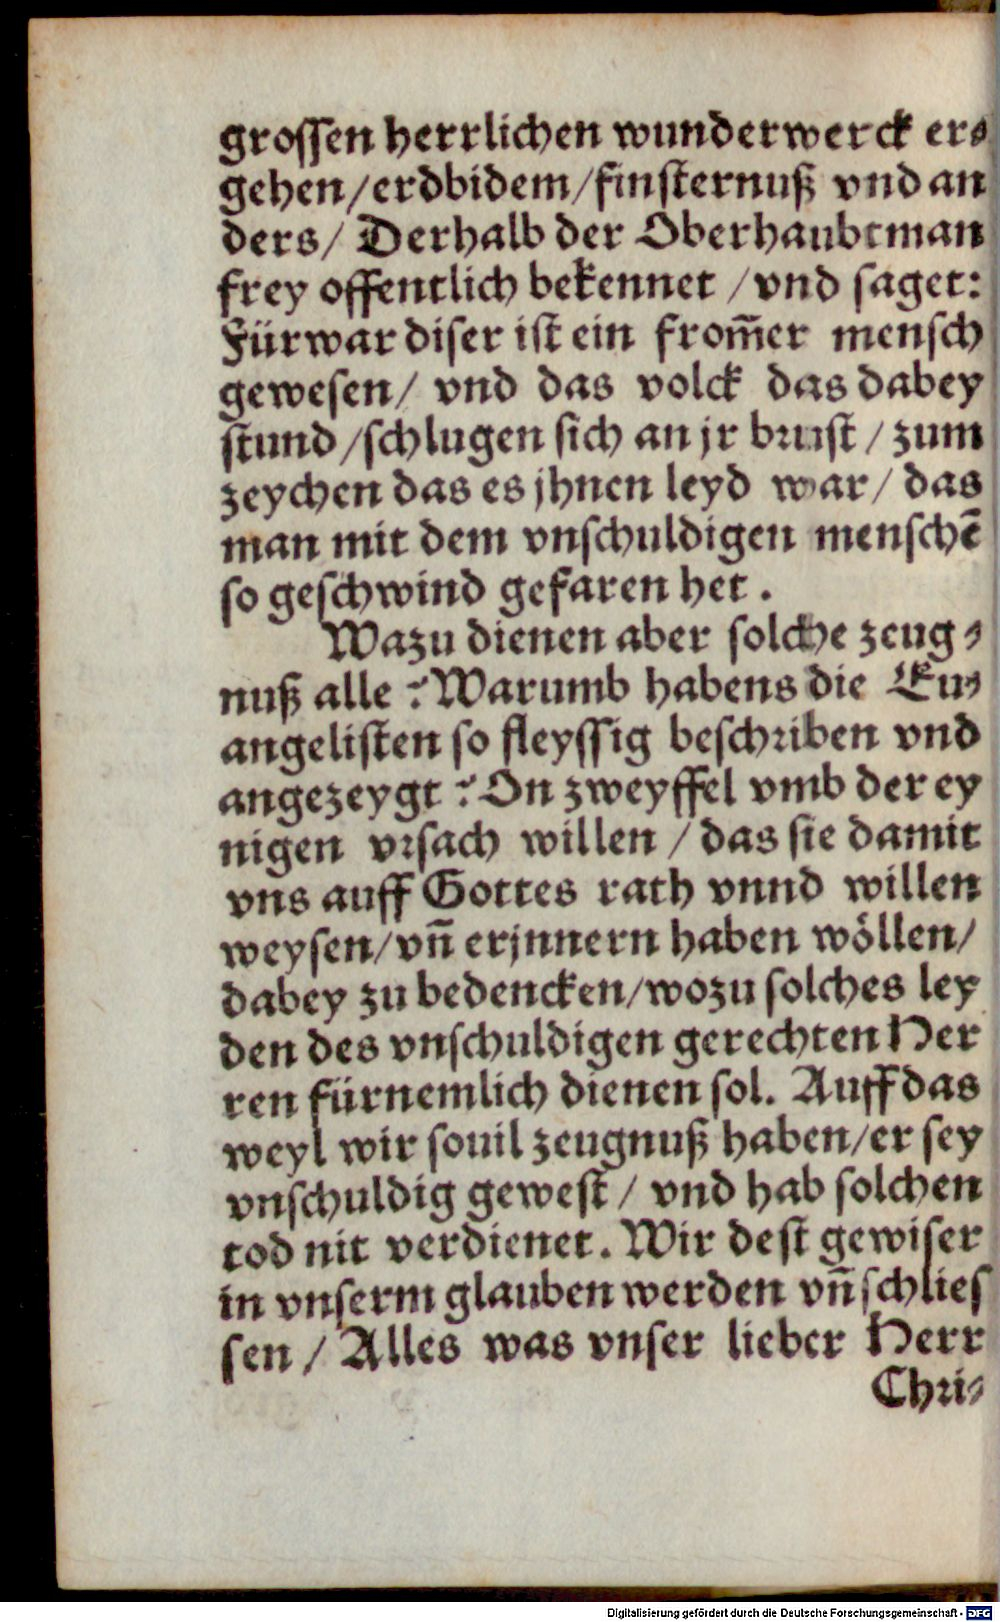 grossen herrlichen wunderwerck er⸗
gehen/erdbidem/finsternuß vnd an
ders/ Derhalb der Oberhaubtman
frey offentlich bekennet /vnd saget:
Fürwar diser ist ein from̃er mensch
gewesen/ vnd das volck das dabey
stund /schlugen sich an jr brust / zum
zeychen das es jhnen leyd war/ das
man mit dem vnschuldigen menschẽ
so geschwind gefaren het.
Wazu dienen aber solche zeug⸗
nuß alle? Warumb habens die Eu⸗
angelisten so fleyssig beschriben vnd
angezeygt? On zweyffel vmb der ey
nigen vrsach willen / das sie damit
vns auff Gottes rath vnnd willen
weysen/vñ erjnnern haben wöllen/
dabey zu bedencken/wozu solches ley
den des vnschuldigen gerechten Her
ren fürnemlich dienen sol. Auff das
weyl wir souil zeugnuß haben/er sey
vnschuldig gewest / vnd hab solchen
tod nit verdienet. Wir dest gewiser
in vnserm glauben werden vñ schlies
sen / Alles was vnser lieber Herr
Chri⸗
Digitalisierung gefördert durch die Deutsche Forschungsgemeinschaft - DFG